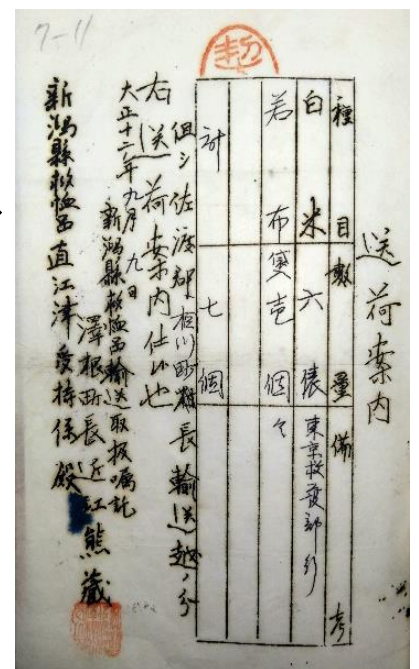 7-11
送荷案内
種目 数量 備考
白米 六俵 東京救護部行
若布 叺壱個 々
計 七個
但シ佐渡郡相川町村長輸送越ノ分
右送荷案内仕候也
大正十二年九月九日
新潟縣救恤品輸送取扱嘱託
澤根町長近江熊藏
新潟縣救恤品直江津受持係殿